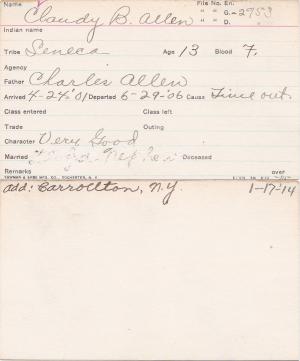 Name Claudy B. Allen File No. En.
" " G.- 2953
" " D.
Indian name
Tribe Seneca Age 13 Blood F.
Agency
Father Charles Allen
Arrived 4-24-'01 Departed 6-29-'06 Cause Time out.
Class entered Class left
Trade Outing
Character Very Good
Married Deceased
Remarks over
add: Carrollton, N.Y. 1-17-'14